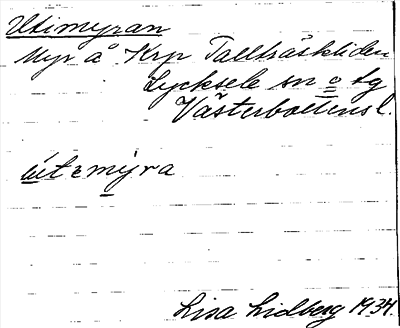 Utimyran
Myr å Krp Tallträskliden
Lycksele sn o lg
Västerbottensl.
út ɛ mýra
Lisa Lidberg 1934.